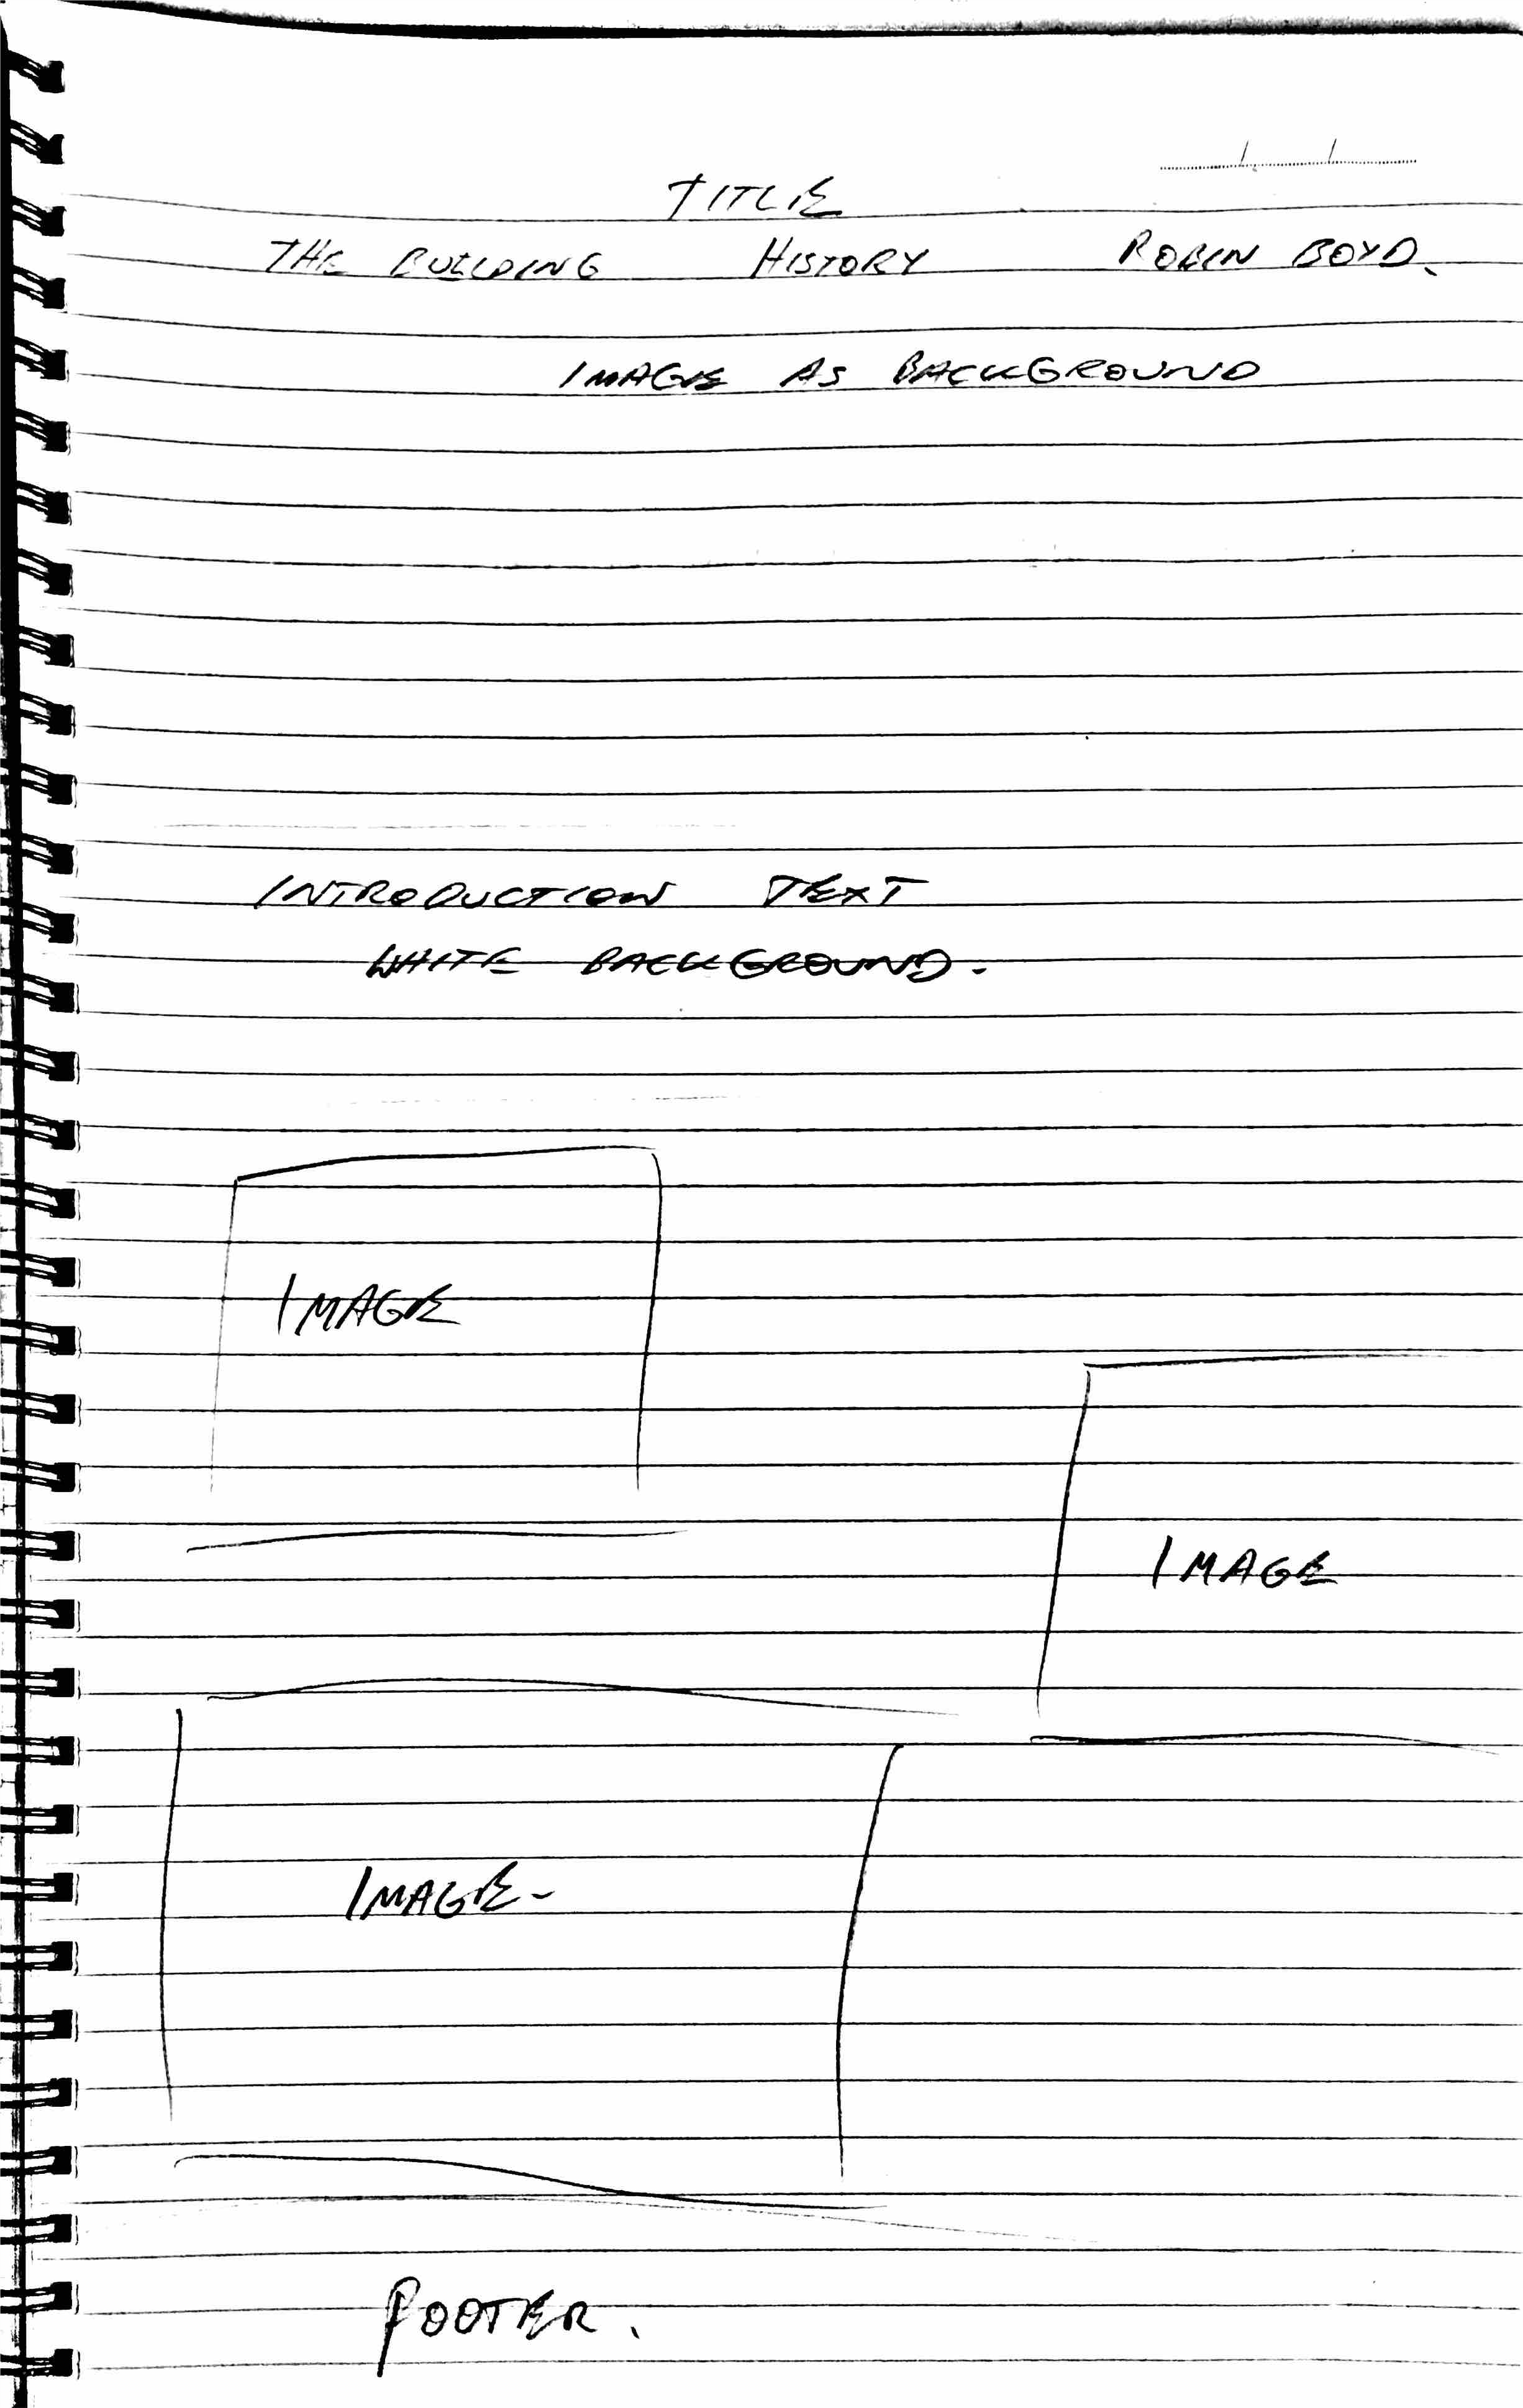 TITLE
THE BUILDING HISTORY ROBIN BOYD.
IMAGE AS BACKGROUND
INTRODUCTION TEXT
WHITE BACKGROUND.
IMAGE
IMAGE
IMAGE-
FOOTER.